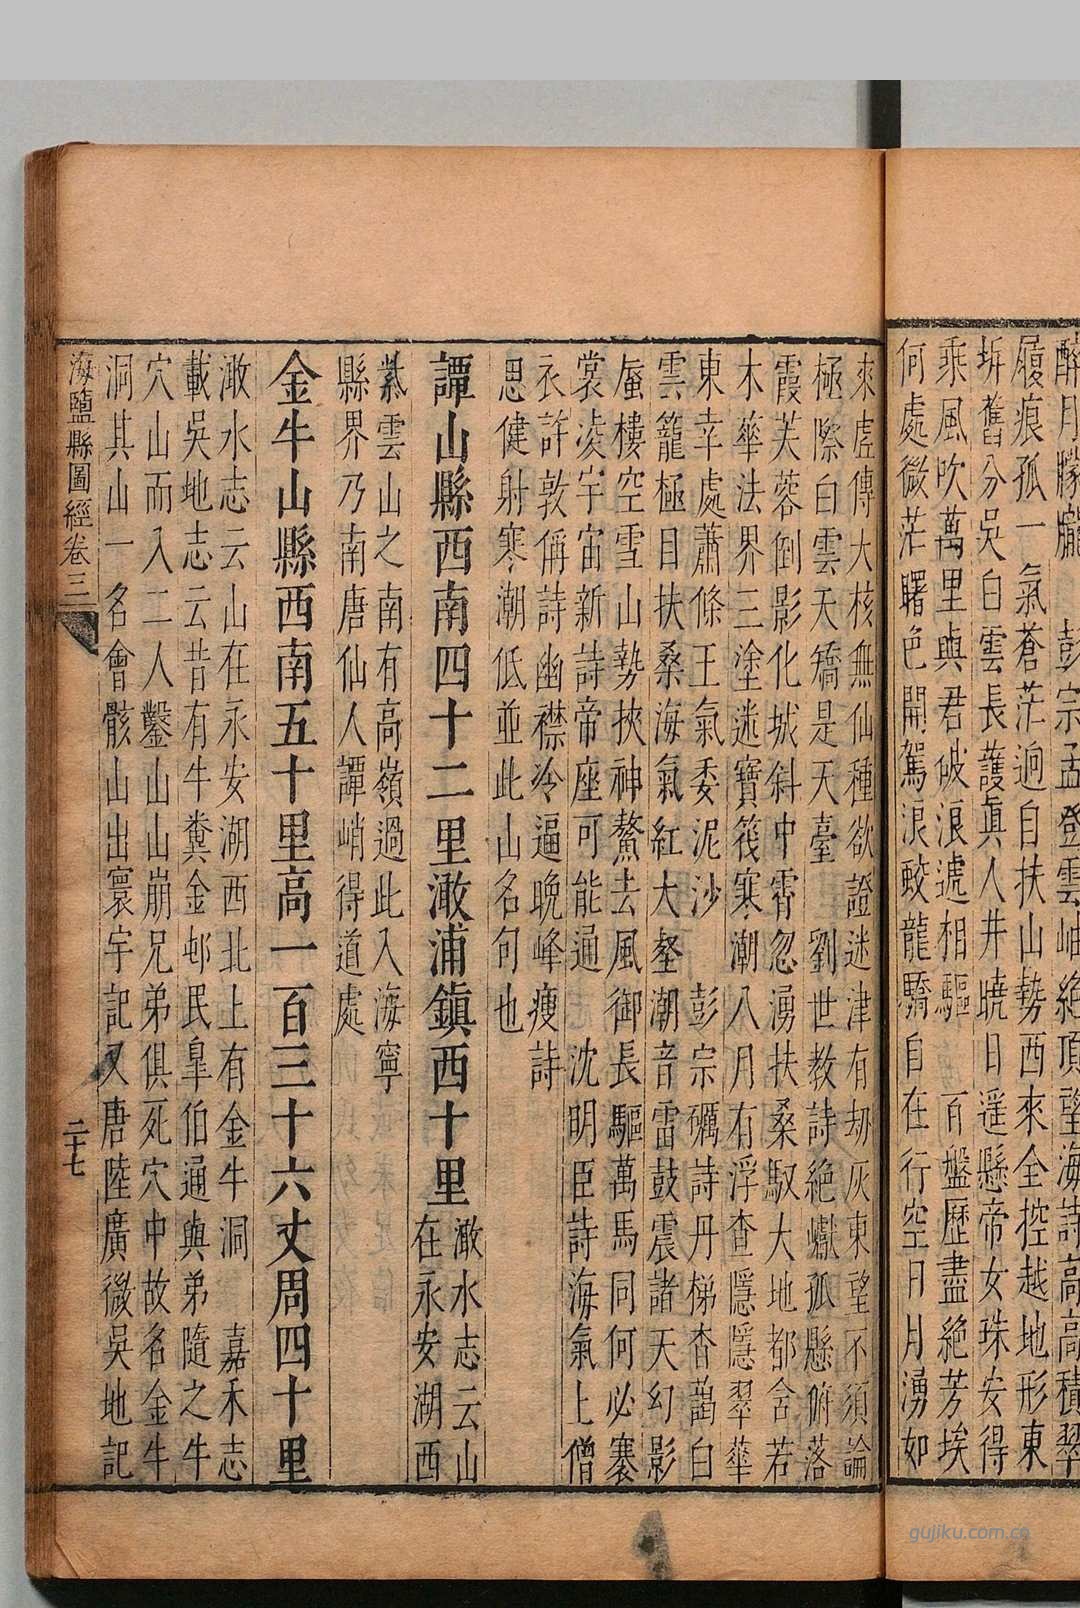 醉月朦朧　彭宗孟登雲岫絕頂望海詩高高積翠
履痕孤一氣蒼茫迥自扶山勢西來全控越地形東
坼舊分吳白雲長護眞人井曉日遥懸帝女珠安得
乘風吹萬里與君破浪遞相驅　百盤歷盡絕芳埃
何處微茫曙色開駕浪蛟龍驕自在行空日月湧如
來虛傳大核無仙種欲證迷津有劫灰東望不須論
極際白雲天矯是天臺　劉世教詩絕巘孤懸俯落
霞芙蓉倒影化城斜中霄忽湧扶桑馭大地都舍若
木華法界三塗迷寶筏寒潮八月有浮查隱隱翠華
東幸處蕭條王氣委泥沙　彭宗礪詩丹梯杳藹白
雲籠極目扶桑海氣紅大壑潮音雷鼓震諸天幻影
蜃樓空雪山勢挾神鰲去風御長驅萬馬同何必褰
裳凌宇宙新詩帝座可能通　沈明臣詩海氣上僧
衣許敦俑詩幽襟冷逼晚峰瘦詩
思健射寒潮低並此山名句也
譚山縣西南四十二里澉浦鎮西十里
澉水志云山
在永安湖西
紫雲山之南有高嶺過此入海寧
縣界乃南唐仙人譚峭得道處
金牛山縣西南五十里高一百三十六丈周四十里
澉水志云山在永安湖西北上有金牛洞　嘉禾志
載吳地志云昔有牛糞金邨民臯伯通與弟隨之牛
穴山而入二人鑿山山崩兄弟俱死穴中故名金牛
洞其山一名會骸山出寰宇記又唐陸廣微吳地記
海鹽縣圖經卷三
二十七
gujiku.com.cn